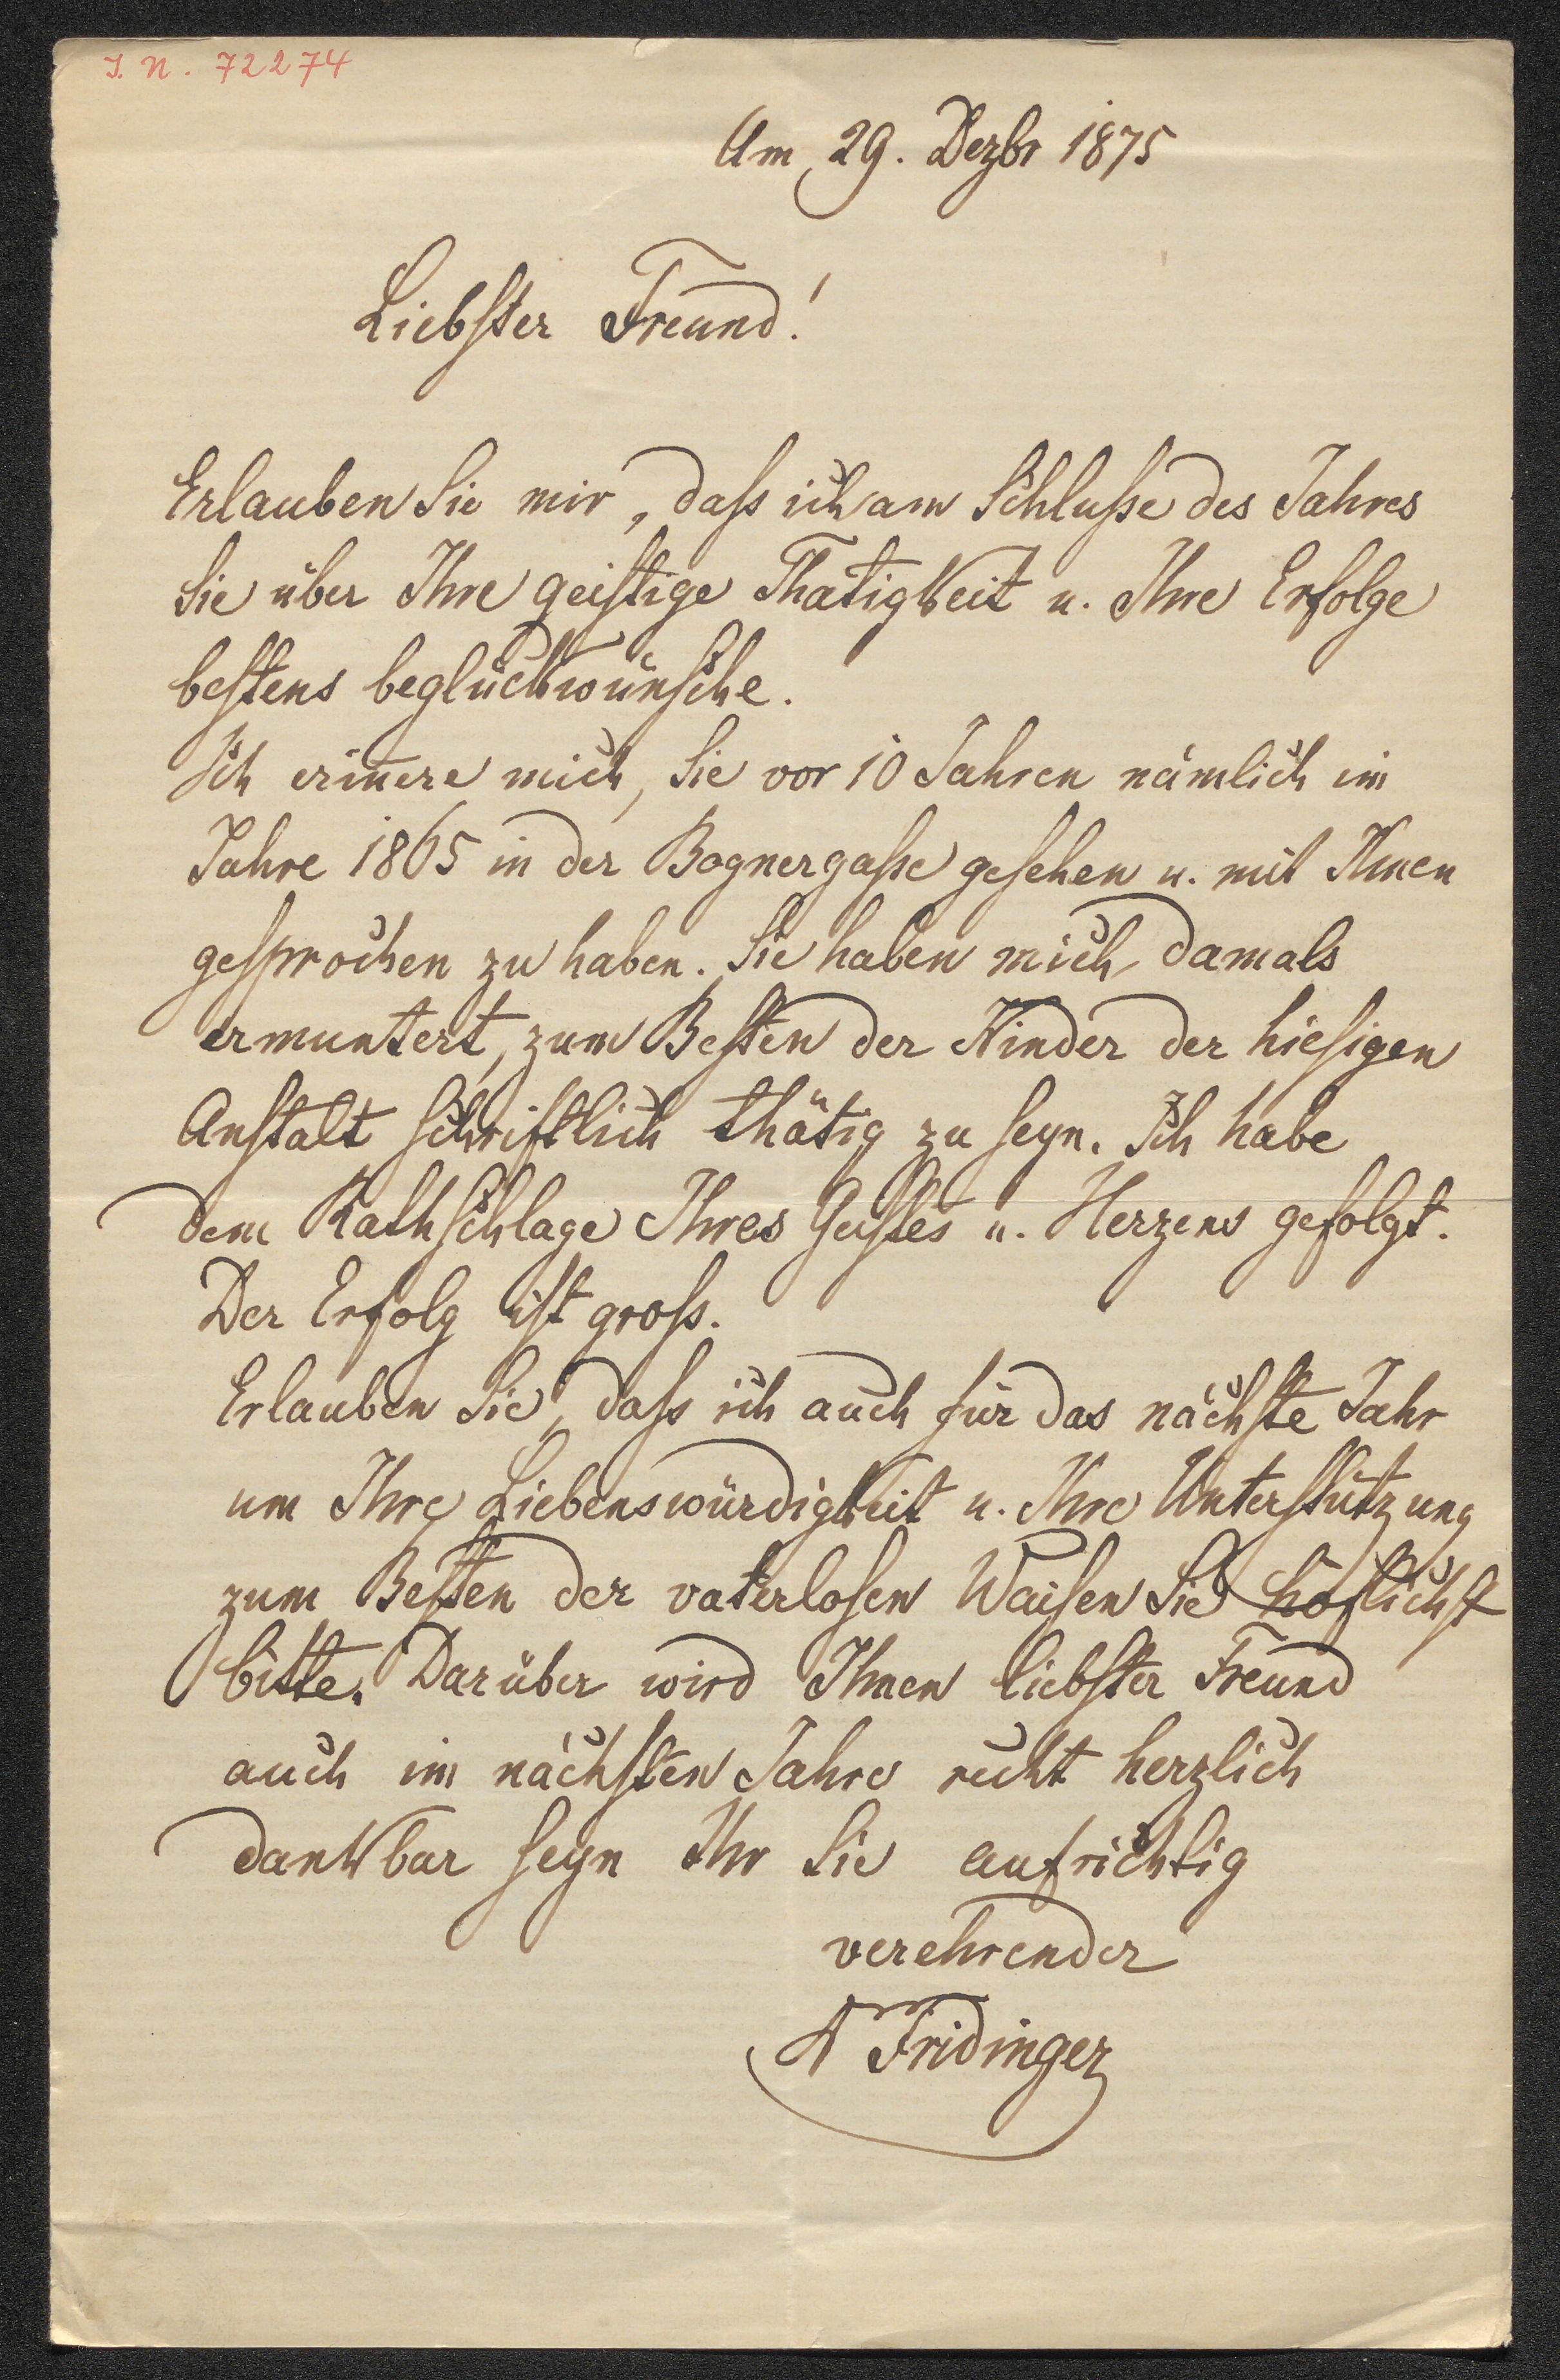 I. N. 72274
Am 29. Dezbr 1875
Liebster Freund!
Erlauben Sie mir, daß ich am Schluße des Jahres
Sie über Ihre geistige Thätigkeit u. Ihre Erfolge
bestens beglückwünsche.
Ich erin̄ere mich, Sie vor 10 Jahren nämlich im
Jahre 1865 in der Bognergaße gesehen u. mit Ihnen
gesprochen zu haben. Sie haben mich damals
ermuntert, zum Besten der Kinder der hiesigen
Anstalt schriftlich thätig zu seyn. Ich habe
dem Rathschlage Ihres Geistes u. Herzens gefolgt.
Der Erfolg ist groß.
Erlauben Sie, daß ich auch für das nächste Jahr
um Ihre Liebenswürdigkeit u. Ihre Unterstützung
zum Besten der vaterlosen Waisen Sie höflichst
bitte. Darüber wird Ihnen liebster Freund
auch im nächsten Jahre recht herzlich
dankbar seyn Ihr Sie aufrichtig
verehrender
A Fridinger